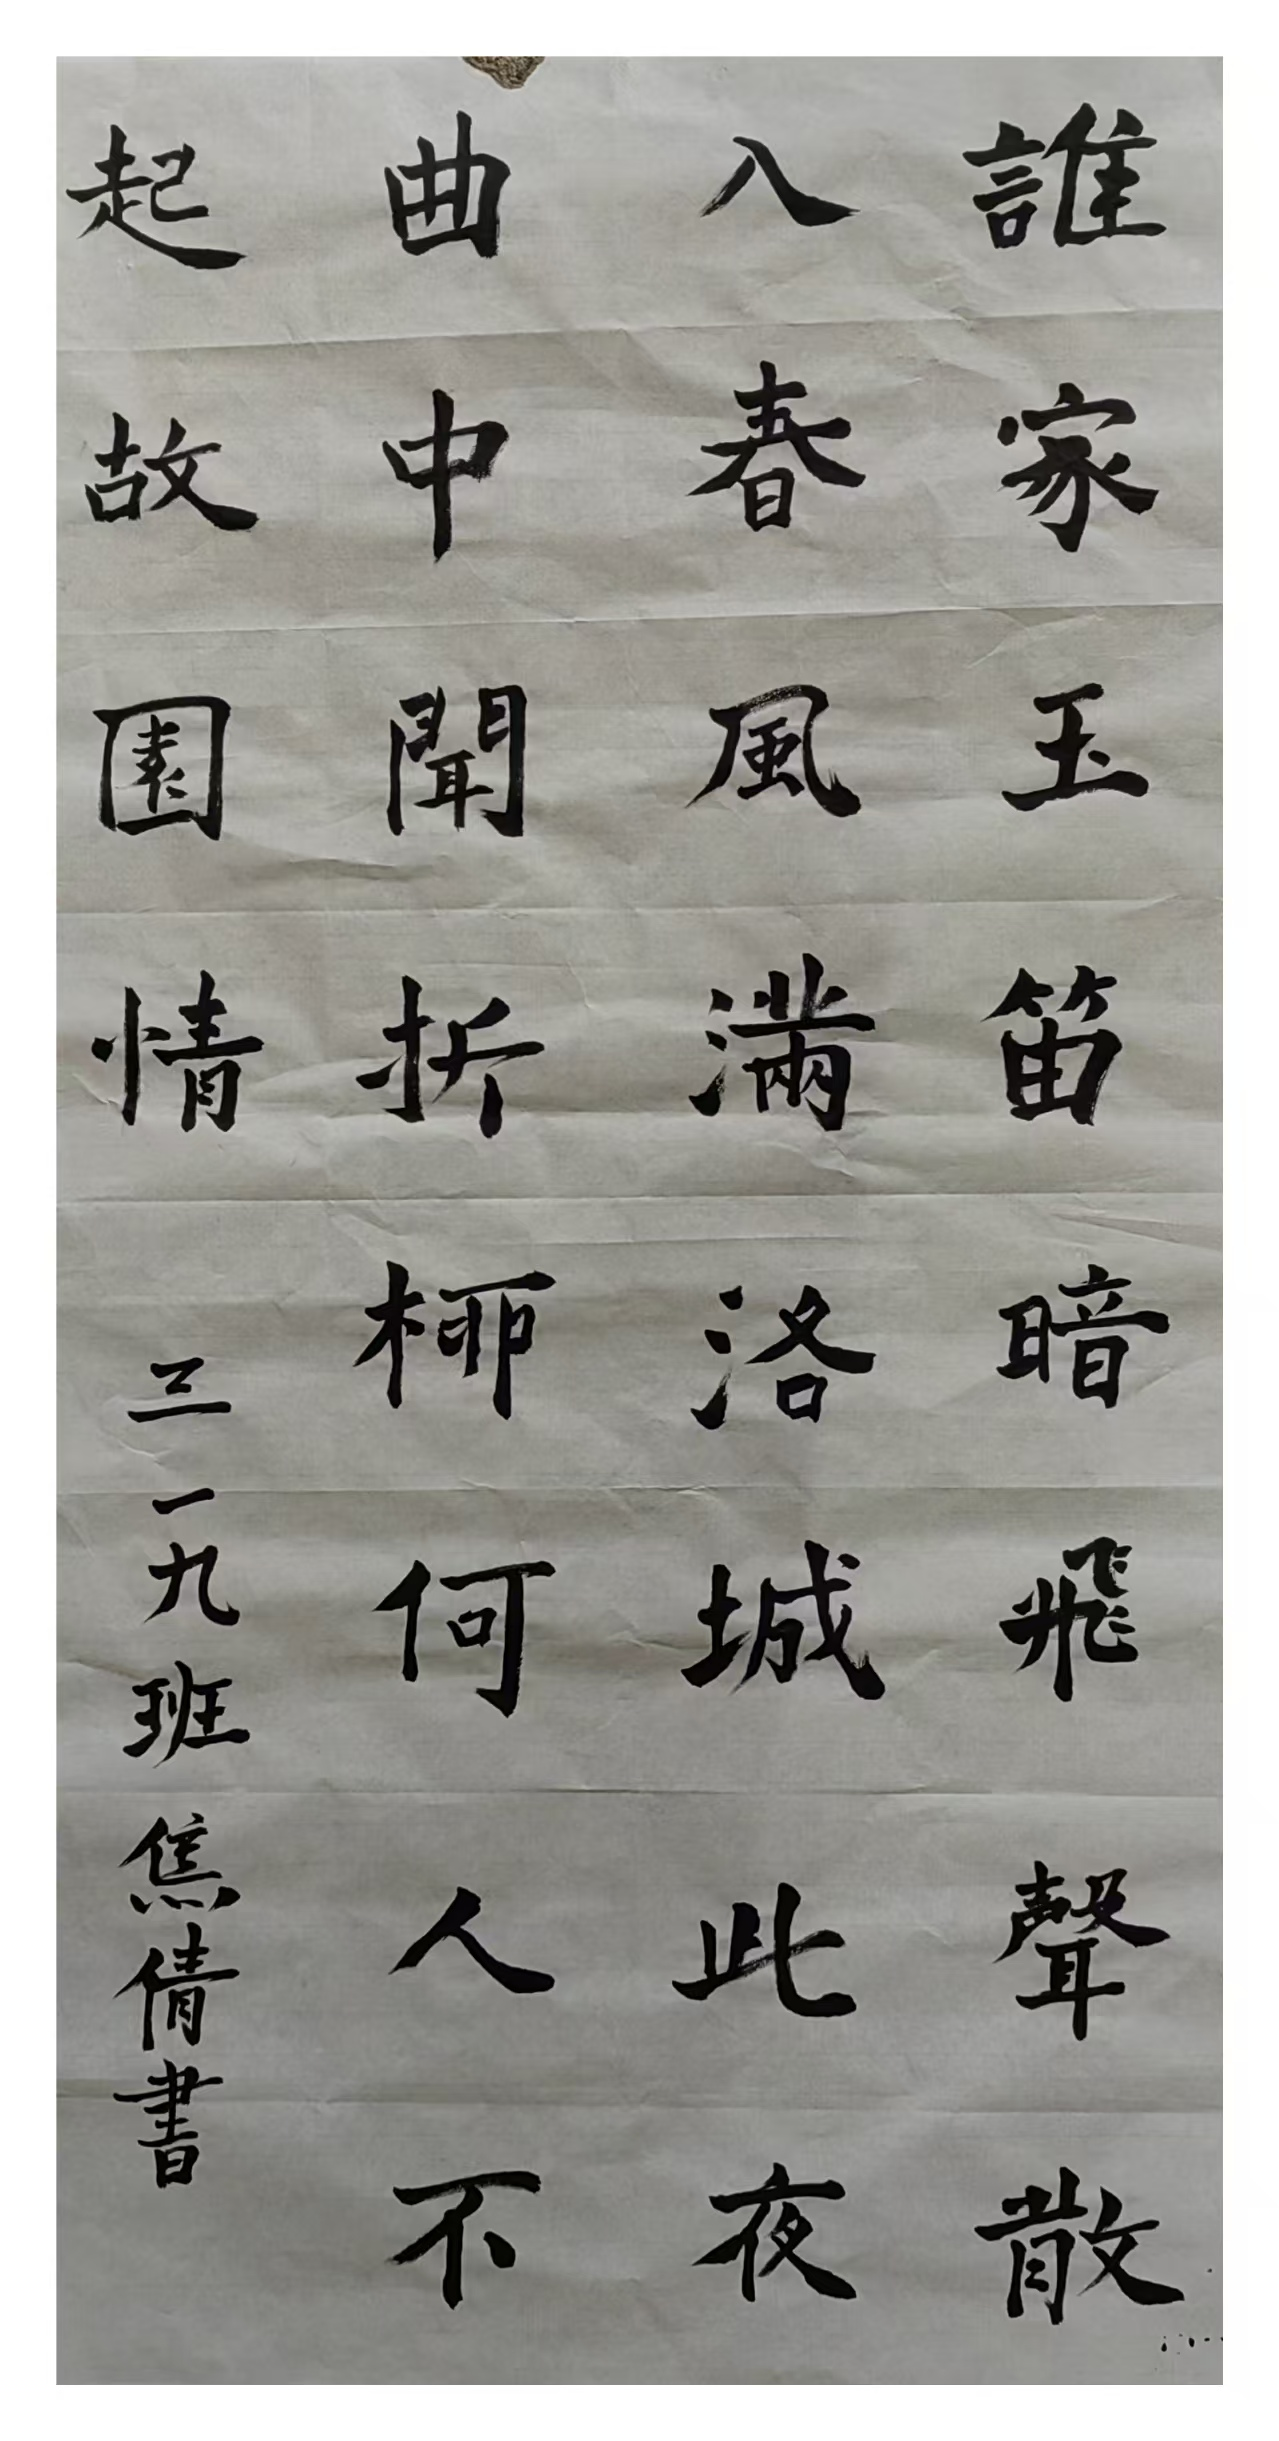 誰家玉笛暗飛聲散
八春風滿洛城此夜
曲中聞折柳何人不
起故園情
三一九班焦倩書